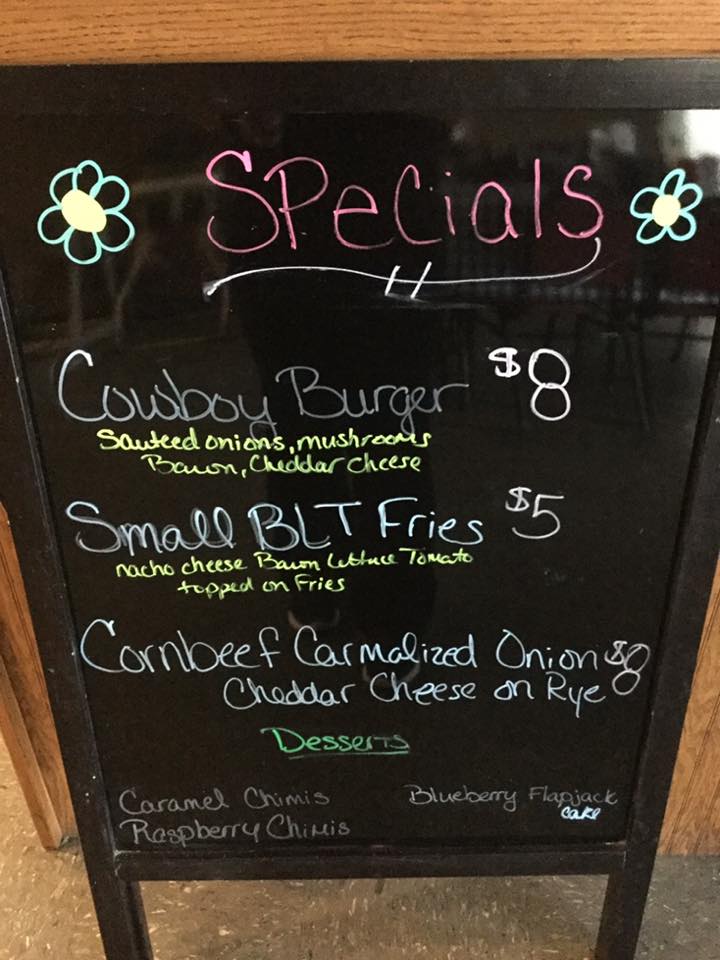 Specials
Cowboy Burger $8
Sauteed onions, mushrooms
Bacon, Cheddar cheese
Small BLT Fries $5
nacho cheese Bacon Lettuce Tomato
topped on Fries
Cornbeef Carmalized Onion $8
Cheddar Cheese on Rye
Desserts
Caramel Chimis
Raspberry Chimis
Blueberry Flapjack
cake